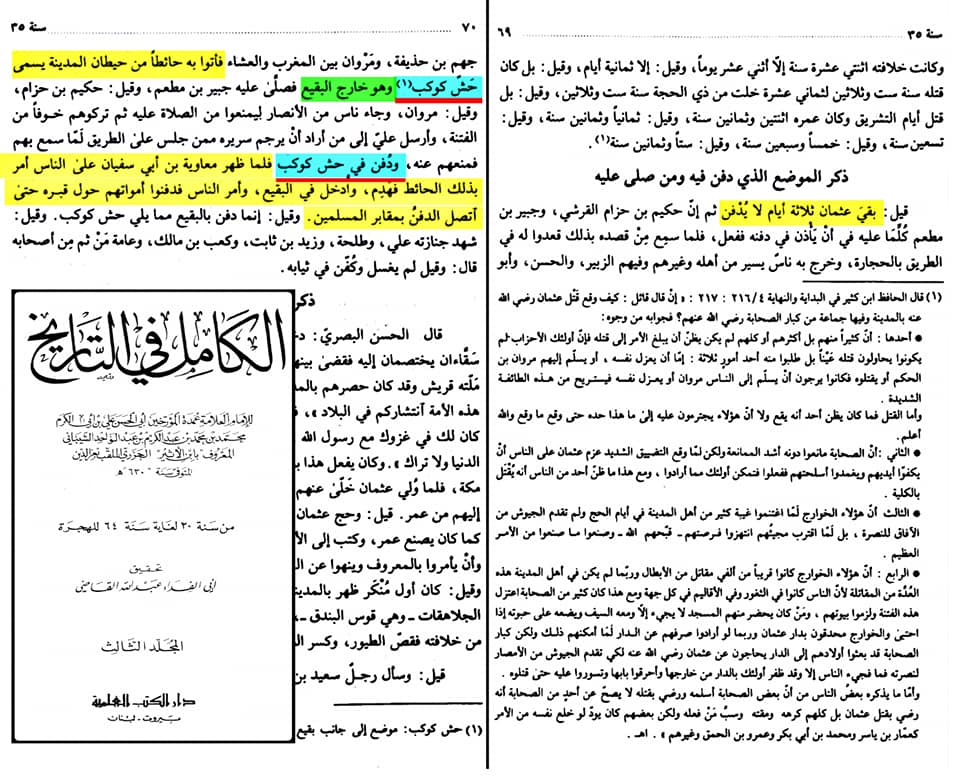 سنة ٣٥ ٦٩
وكانت خلافته اثنتي عشرة سنة إلّا أثني عشر يوماً، وقيل: إلا ثمانية أيام، وقيل: بل كان
قتله سنة ست وثلاثين لثماني عشرة خلت من ذي الحجة سنة ست وثلاثين، وقيل: بل
قتل أيام التشريق وكان عمره اثنتين وثمانين سنة، وقيل: ثمانياً وثمانين سنة، وقيل:
تسعين سنة، وقيل: خمساً وسبعين سنة، وقيل: ستاً وثمانين سنة(١).
ذكر الموضع الذي دفن فيه ومن صلى عليه
قيل: بقيَ عثمان ثلاثة أيام لا يُدْفن ثم إنّ حكيم بن حزام القرشي، وجبير بن
مطعم كُلّما عليه في أنْ يأذن في دفنه ففعل، فلما سمِع مِنْ قصده بذلك قعدوا له في
الطريق بالحجارة، وخرج به ناسٌ يسير من أهله وغيرهم وفيهم الزبير، والحسن، وأبو
(١) قال الحافظ ابن كثير في البداية والنهاية ٢١٦/٤ : ٢١٧ : « إنْ قال قائل : كيف وقع قَتْل عثمان رضي الله
عنه بالمدينة وفيها جماعة من كبار الصحابة رضي الله عنهم؟ فجوابه من وجوه:
● أحدها : أنّ كثيراً منهم بل أكثرهم أو كلهم لم يكن يظنّ أن يبلغ الأمر إلى قتله فإنّ أولئك الأحزاب لم
يكونوا يحاولون قتله عَيْناً بل طلبوا منه أحد أمور ثلاثة : إمّا أن يعزل نفسه ، أو يسلّم إليهم مروان بن
الحكم أو يقتلوه فكانوا يرجون أنْ يسلّم إلى الناس مروان أو يعزل نفسه فيستريح من هذه الطائفة
الشديدة .
وأما القتل فما كان يظن أحد أنه يقع ولا أنّ هؤلاء يجترمون عليه إلى ما هذا حده حتى وقع ما وقع والله
أعلم.
● الثاني :أنّ الصحابة مانعوا دونه أشد الممانعة ولكن لمّا وقع التضييق الشديد عزم عثمان على الناس أنْ
يكفّوا أيديهم ويغمدوا أسلحتهم ففعلوا فتمكن أولئك مما أرادوا ، ومع هذا ما ظنّ أحد من الناس أنه يُقْتل
بالكلية .
● الثالث أنّ هؤلاء الخوارج لمّا اغتنموا غيبة كثير من أهل المدينة في أيام الحج ولم تقدم الجيوش من
الآفاق للنصرة ، بل لَمّا اقترب مجيئهم انتهزوا فرصتهم ـ قبّحهم الله ـ وصنعوا ما صنعوا من الأمر
العظيم .
● الرابع : أنّ هؤلاء الخوارج كانوا قريباً من ألفي مقاتل من الأبطال وربّما لم يكن في أهل المدينة هذه
العُدّة من المقاتلة لأنّ الناس كانوا في الثغور وفي الأقاليم في كل جهة ومع هذا كان كثير من الصحابة اعتزل
هذه الفتنة ولزموا بيوتهم ، ومَنْ كان يحضر منهم المسجد لا يجيء إلّا ومعه السيف ويضعه على حبوته إذا
احتبى والخوارج محدقون بدار عثمان وربما لو أرادوا صرفهم عن الدار لَمّا أمكنهم ذلك ولكن كبار
الصحابة قد بعثوا أولادهم إلى الدار يحاجون عن عثمان رضي الله عنه لكي تقدم الجيوش من الأمصار
لنصرته فما فجيء الناس إلا وقد ظفر أولئك بالدار من خارجها وأحرقوا بابها وتسوروا عليه حتى قتلوه .
وأمّا ما يذكره بعضُ الناس من أنّ بعض الصحابة أسلمه ورضي بقتله لا يصحّ عن أحدٍ من الصحابة أنه
رضي بقتل عثمان بل كلهم كرهه ومقته وسبّ مَنْ فعله ولكن بعضهم كان يودّ لو خلع نفسه من الأمر
كعمّار بن ياسر ومحمد بن أبي بكر وعمرو بن الحمق وغيرهم » . اهـ .
٧٠ سنة ٣٥
جهم بن حذيفة، ومَرْوان بين المغرب والعشاء فأتوا به حائطاً من حيطان المدينة يسمى
حَشّ كوكب(١) وهو خارج البقيع فصلّى عليه جبير بن مطعم، وقيل: حكيم بن حزام،
وقيل: مروان، وجاء ناس من الأنصار ليمنعوا من الصلاة عليه ثم تركوهم خوفاً من
الفتنة، وأرسل عليّ إلى من أراد أنْ يرجم سريره ممن جلس على الطريق لمّا سمع بهم
فمنعهم عنه، ودُفن في حش كوكب فلما ظهر معاوية بن أبي سفيان على الناس أمر
بذلك الحائط فهُدِم، وأُدخل في البقيع، وأمر الناس فدفنوا أمواتهم حول قبره حتى
أتصل الدفنُ بمقابر المسلمين. وقيل: إنما دفن بالبقيع مما يلي حش كوكب. وقيل:
شهد جنازته علي، وطلحة، وزيد بن ثابت، وكعب بن مالك، وعامة مَنْ ثم مِن أصحابه
قال: وقيل لم يغسل وكُفّن في ثيابه.
ذكر
قال الحسن البصري:
سَقّاءان يختصمان إليه فقضى بينه
ملّته قريش وقد كان حصرهم بالمد
هذه الأمة أنتشاركم في البلاد »،
كان لك في غزوك مع رسول الله
الدنيا ولا تراك ». وكان يفعل هذا
مكة، فلما وُلي عثمان خَلّى عنهم
إليهم من عمر. قيل: وحج عثمان
كما كان يصنع عمر، وكتب إلى الأ
وأنْ يأمروا بالمعروف وينهوا عن ال
وقيل: كان أول مُنْكَر ظهر بالمدين
الجلاهقات ـ وهي قوس البندق ـ
من خلافته فقصّ الطيور، وكسر ال
قيل: وسأل رجلٌ سعيد بن
(١) حش كوكب: موضع إلى جانب بقيع
الكامل في التاريخ
للإمام العلامة عمدة المؤرخين أبي الحسن علي بن أبي الكرم
محمد بن محمد بن عبد الكريم بن عبد الواحد الشيباني
المعروف بابن الأثير الجزري الملقب بعز الدين
المتوفى سنة ٦٣٠ هـ
من سنة ٣٠ لغاية سنة ٦٤ للهجرة
تحقيق
أبي الفداء عبد الله القاضي
المجلد الثالث
دار الكتب العلمية
بيروت - لبنان